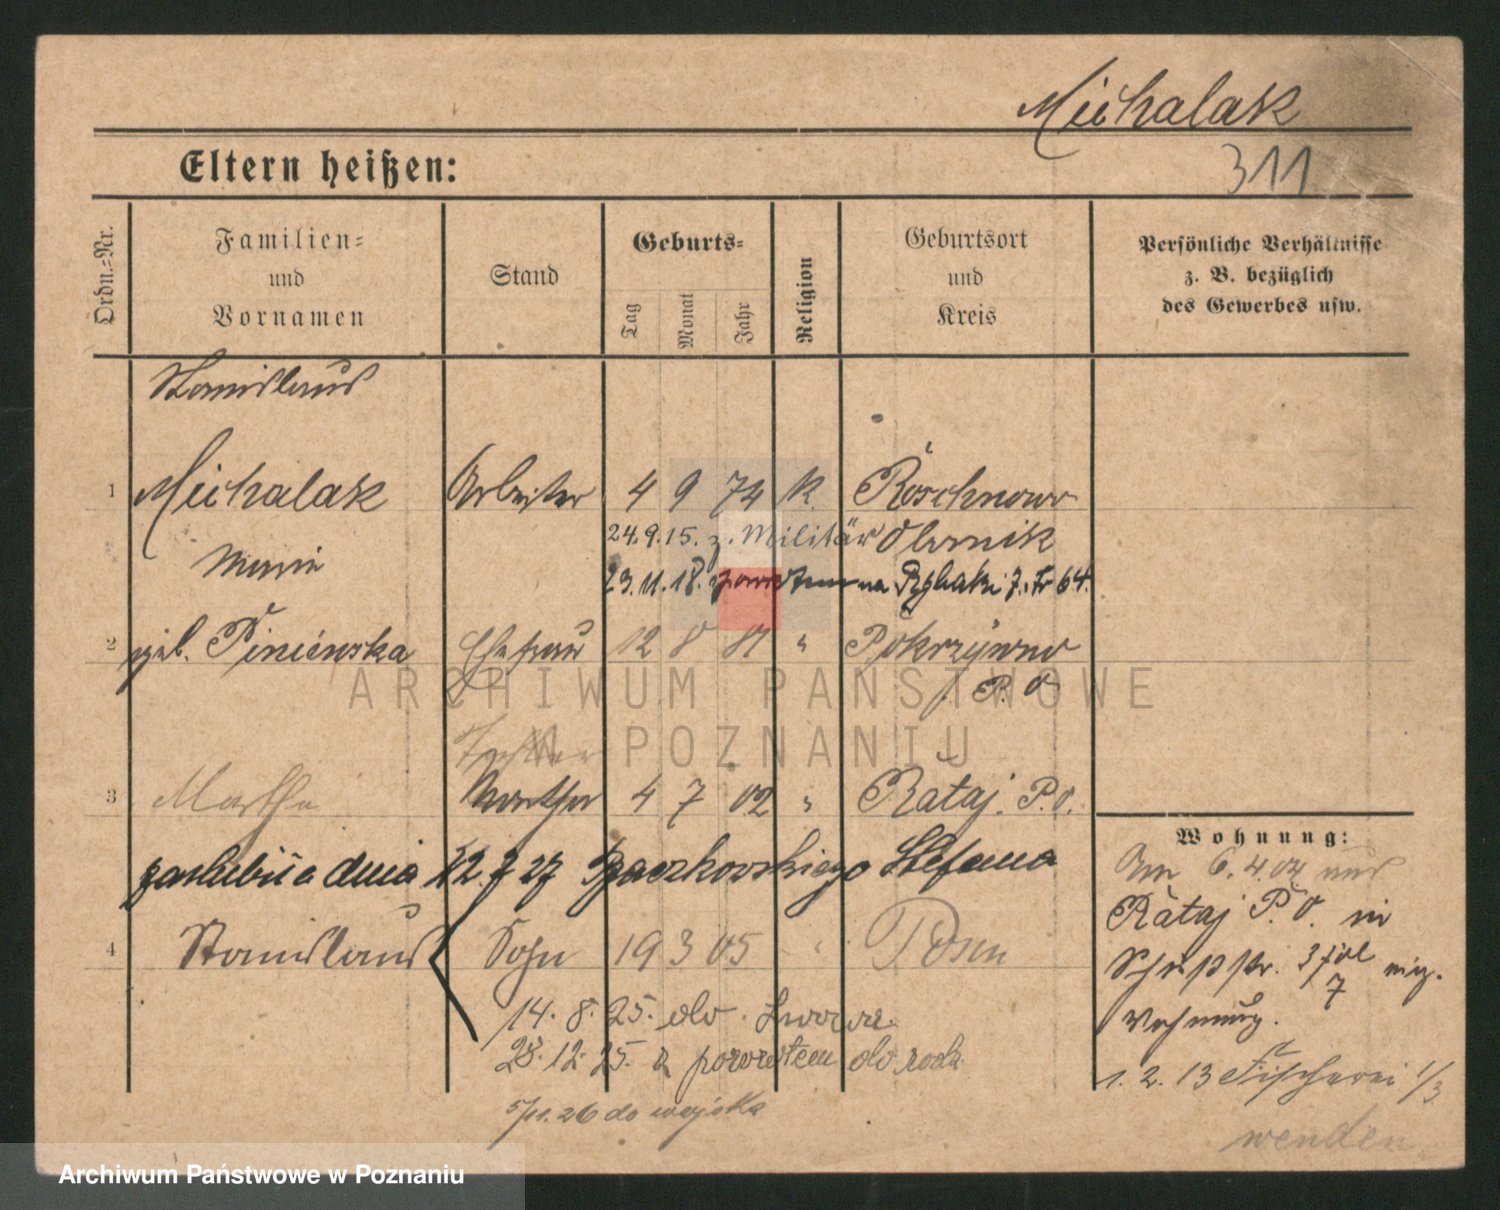 Michalak
311
Eltern heißen:
Ordn.=Nr.
Familien=
und
Vornamen
Stand
Geburts=
Tag
Monat
Jahr
Religion
Geburtsort
und
Kreis
Persönliche Verhältnisse
z. B. bezüglich
des Gewerbes usw.
Stanislaus
1 Michalak Arbeiter 4 9 74 K. Roschnowo
24.9.15. z. Militär Obornik
Marie
23.11.18. powrotem na Rybaki 7. Fr 64.
2 geb. Piniewska Ehefrau 12 8 81 " Pokrzywno
P. O
Tochter
3 Martha Martha 4 7 02 " Rataj. P.O.
zaslubiła dnia 12.7 27 Stefana
4 Stanislaus Sohn 19 3 05 " Posen
14. 8. 25. do Lwowa
28. 12. 25. z powrotem do rodz.
5/11. 26 do wojska
Wohnung:
Am 6.4.04 aus
Rataj P. O. in
7
Wohnung.
1. 2. 13 Fischerei 1/3
wenden
ARCHIWUM PAŃSTWOWE
W POZNANIU
Archiwum Państwowe w Poznaniu